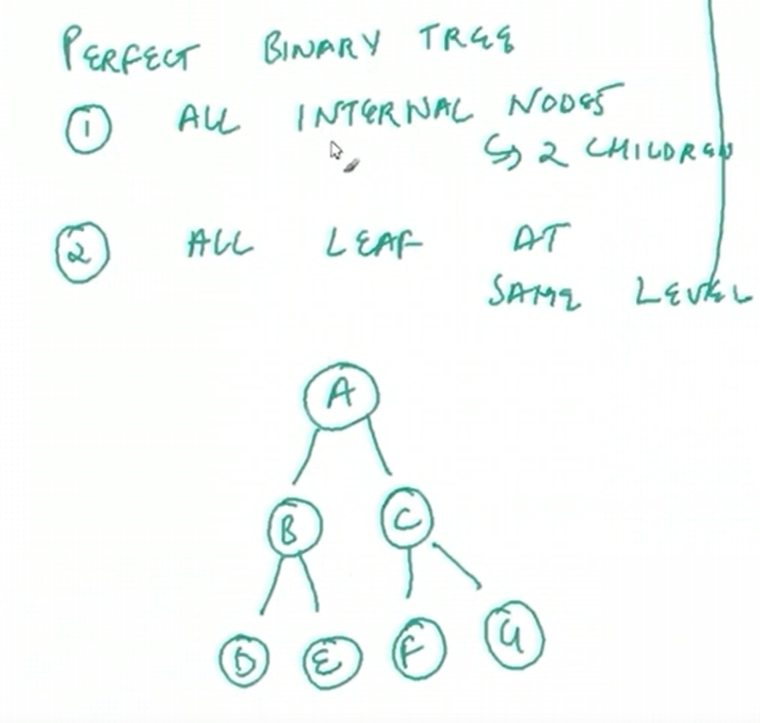 PERFECT BINARY TREE
① ALL INTERNAL NODES
↳ 2 CHILDREN
② ALL LEAF AT
SAME LEVEL
A
B C
D E F G